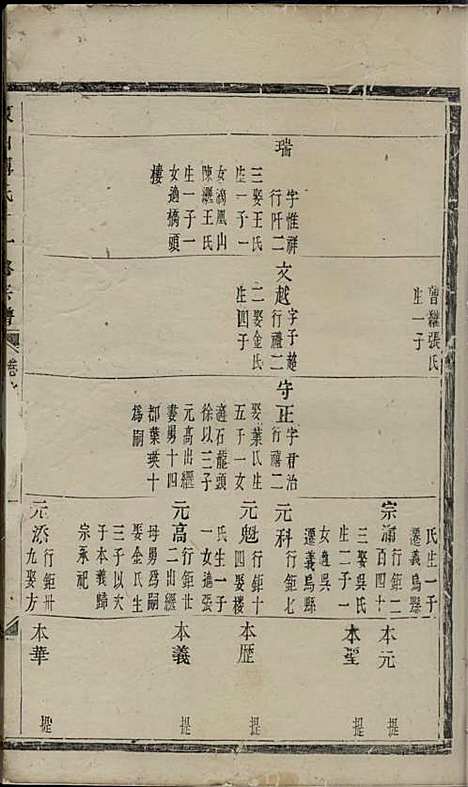 瑞
字惟祥
行阡二
三娶王氏
生一子一
女適鳳山
陳灑王氏
生一子一
女適橋頭
樓
曾灑張氏
生一子
文越
字子越
行禮二
二娶金氏
生四子
守正
字君治
行禧二
娶葉氏生
五子一女
適石龍頭
徐以三子
元高出繼
妻男十四
都葉瑛十
爲嗣
氏生一子
遷義烏縣
宗浦
行鉅二
百四十
三娶吳氏
生二子一
女適吳
遷義烏縣
元科
行鉅七
元魁
行鉅十
四娶樓
氏生一子
一女適張
元高
行鉅廿
二出繼
母男爲嗣
娶金氏生
三子以次
子本義歸
宗承祀
元添
行鉅卅
九娶方
本元
提
本聖
提
本歷
提
本義
提
本華
提